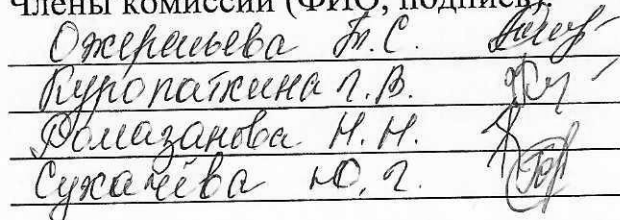 Члены комиссии (ФИО, подпись):
Ожерельева Т.С.
Куропаткина Г.В.
Ромазанова Н.Н.
Сухачёва Ю.Г.